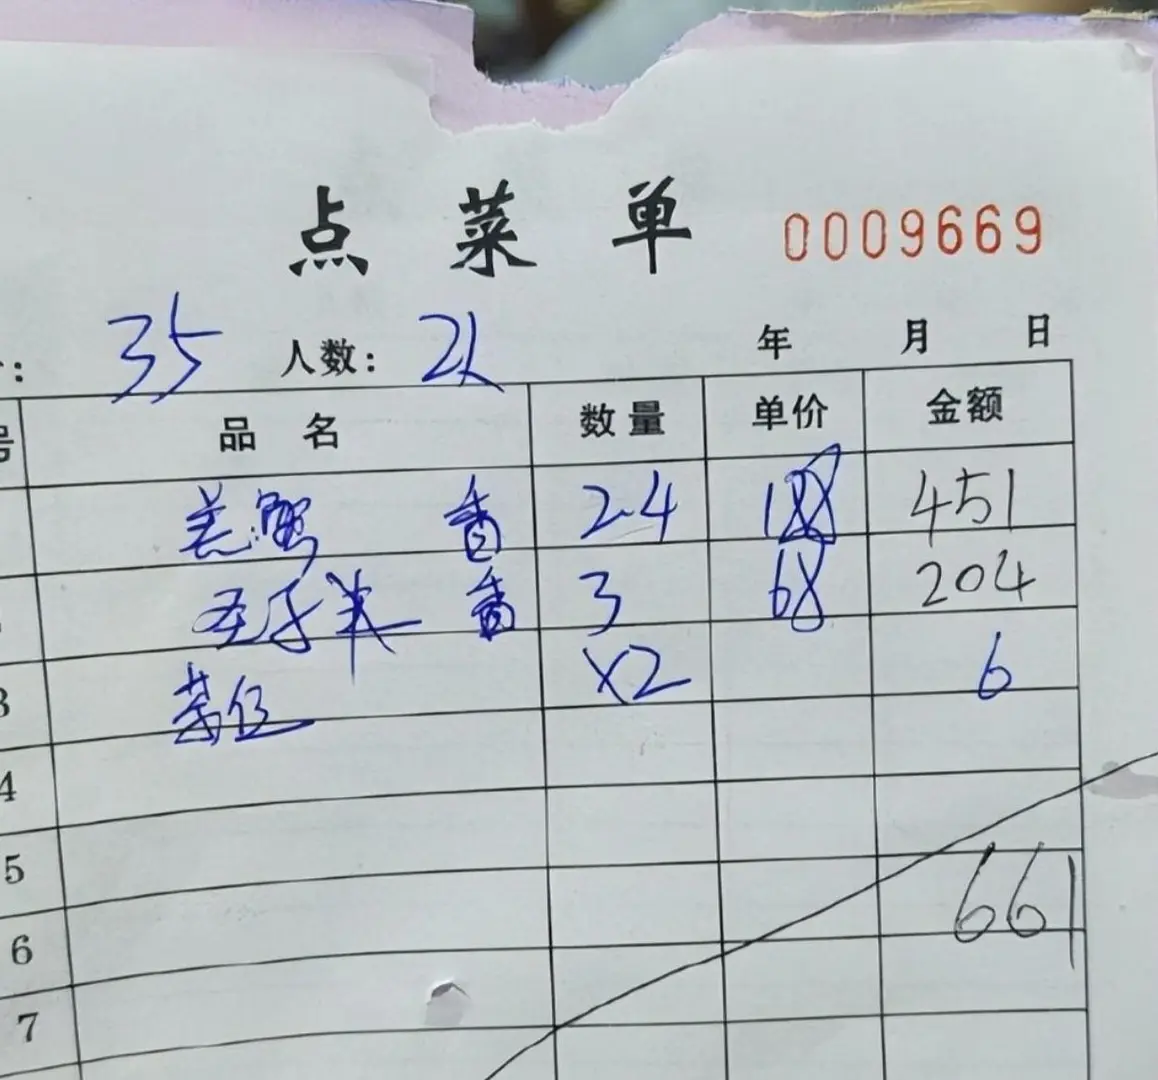 点菜单 0009669
: 35 人数: 2人 年 月 日
号 品名 数量 单价 金额
羔蟹 2.4 188 451
圣子 3 68 204
3 茶位 ×2 6
4
5
661
6
7